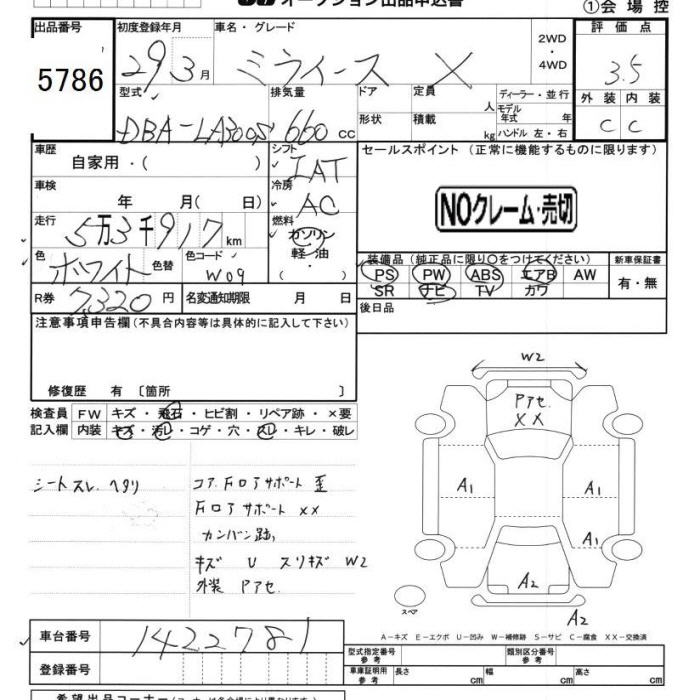 オークション出品申込書
①会場控
出品番号 初度登録年月 車名・グレード 2WD・4WD 評価点
5786 29年3月 ミライース X 3.5
型式 排気量 ドア 定員 人 ディーラー・並行 外装 内装
DBA-LA300S 660cc 形状 積載 kg モデル年式 年 ハンドル 左・右 C C
車歴 シフト セールスポイント (正常に機能するものに限ります)
自家用・( ) IAT
車検 冷房
年 月( 日) AC NOクレーム・売切
走行 燃料
5万3千917km ガソリン・軽油・( )
装備品 (純正品に限り○をつけてください) 新車保証書
色 色替 色コード PS PW ABS エアB AW 有・無
ホワイト W09 SR ナビ TV カワ
R券 7,320円 名変通知期限 月 日 後日品
注意事項申告欄 (不具合内容等は具体的に記入して下さい)
修復歴 有 〔箇所 〕
検査員 FW キズ・飛石・ヒビ割・リペア跡・×要
記入欄 内装 キズ・汚レ・コゲ・穴・スレ・キレ・破レ
W2
Pアセ
XX
シートスレ ヘタリ
コア、Fロアサポート 歪
Fロアサポート XX
カンバン跡,
キズ U スリキズ W2
外装 Pアセ
A1 A1
A1
A2
スペア A2
A-キズ E-エクボ U-凹み W-補修跡 S-サビ C-腐食 XX-交換済
車台番号 1422781
型式指定番号 参考 類別区分番号 参考
登録番号 車庫証明用 参考 長さ cm 幅 cm 高さ cm
希望出品コーナー